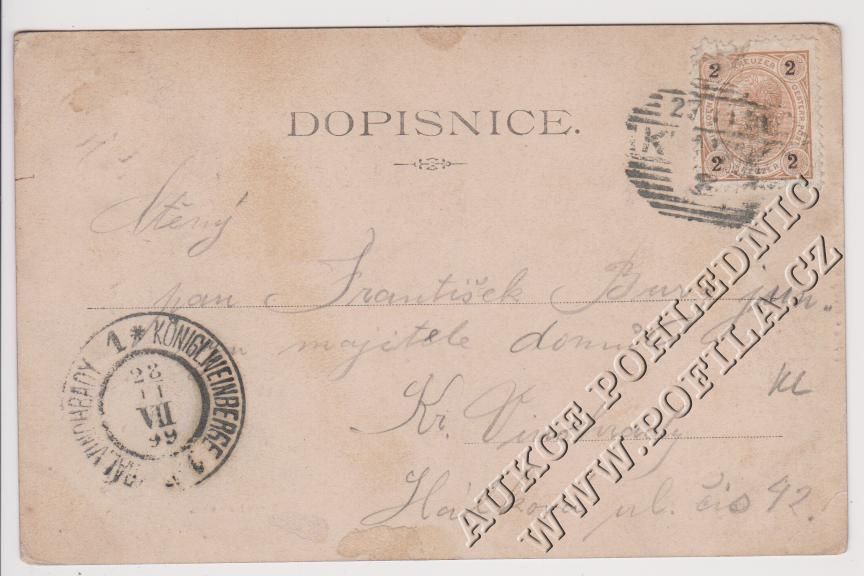 DOPISNICE.
2 KREUZER 2
2 KREUZER 2
Ctěný
pan František
majitele domů
Kr. Vinohrady
ul. čís 42.
KÖNIGL. WEINBERGE 1
KRÁL. VINOHRADY 1
23
11
VII
99
AUKCE POHLEDNIC
WWW.POFILA.CZ